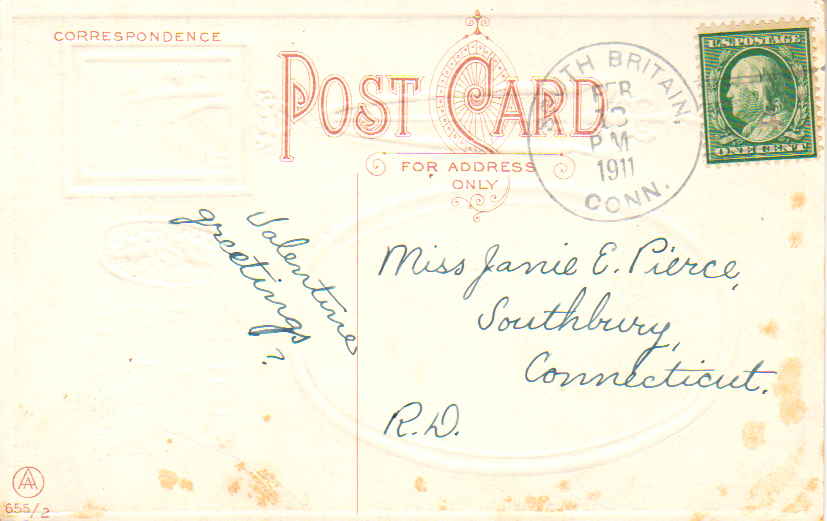 CORRESPONDENCE
POST CARD
FOR ADDRESS
ONLY
SOUTH BRITAIN,
FEB
13
PM
1911
CONN.
U.S. POSTAGE
ONE CENT
Valentine
greetings
?
Miss Janie E. Pierce,
Southbury,
Connecticut.
R.D.
AA
655/2